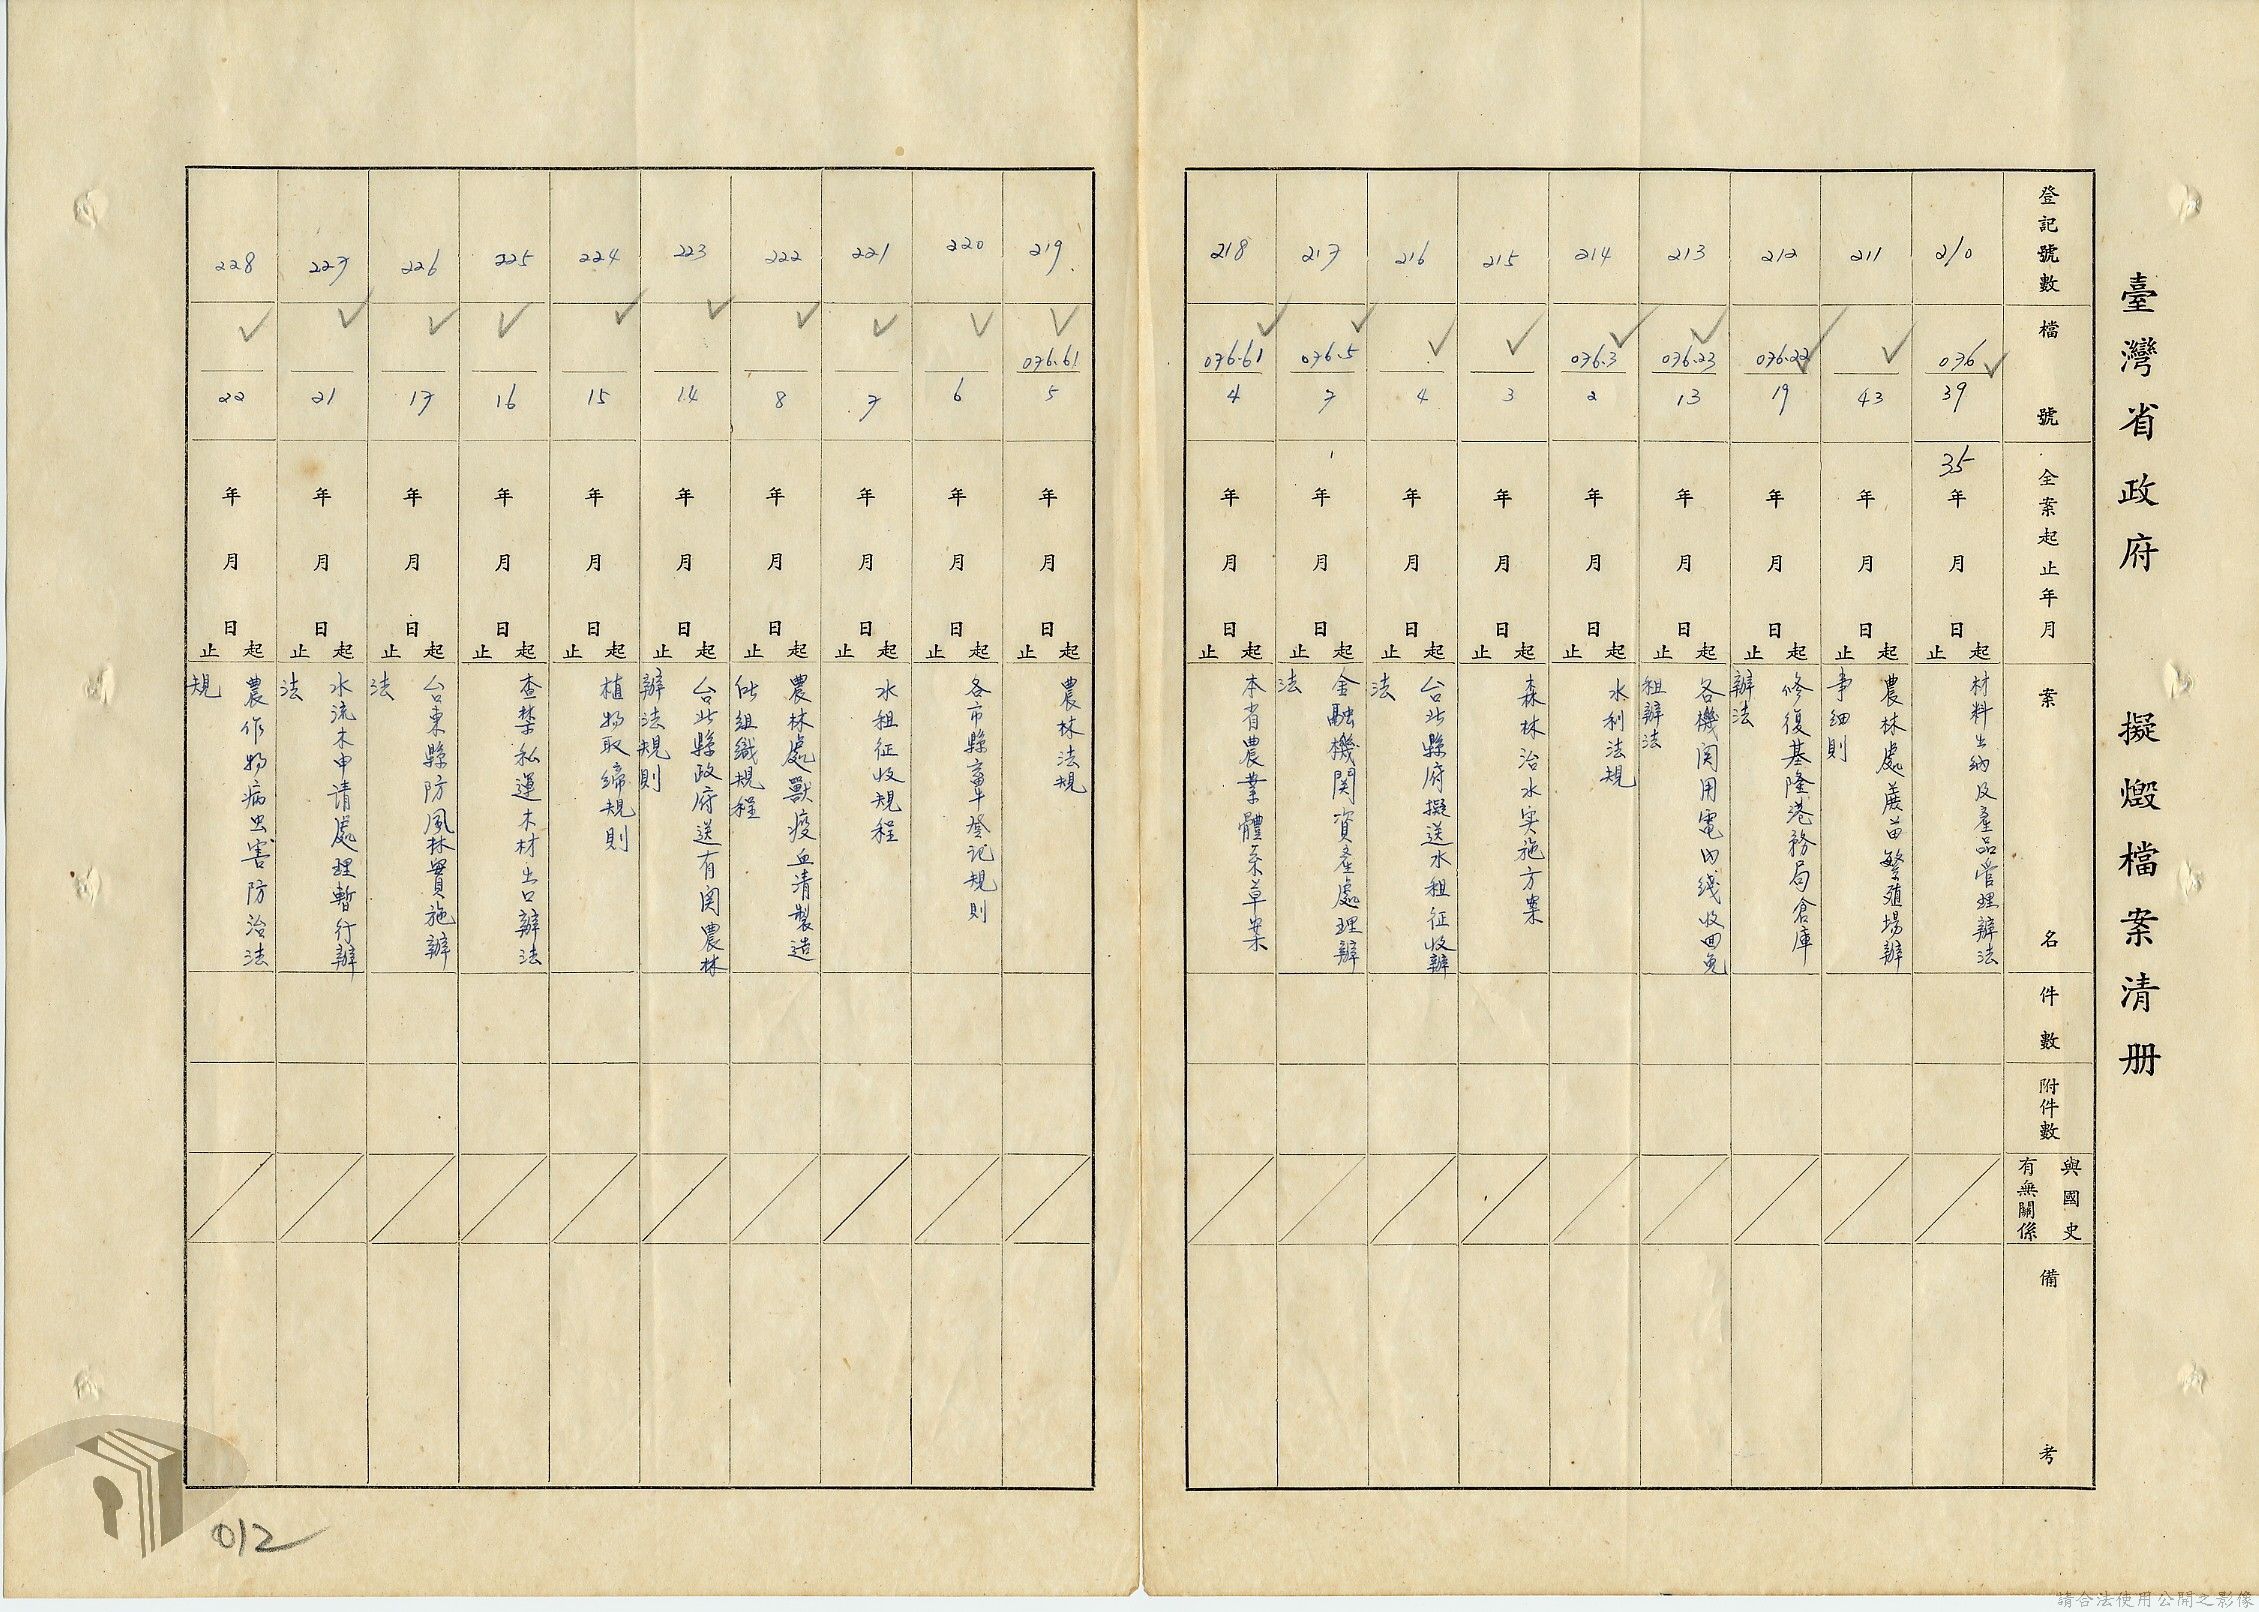 臺灣省政府 擬燬檔案清册
登記號數
檔號
全案起止年月
案名
件數
附件數
與國史有無關係
備考
210
076
39
35年月日起止
材料出納及產品管理辦法
211
43
年月日起止
農林處蔗苗繁殖場辦
事細則
212
076.22
19
年月日起止
修復基隆港務局倉庫
辦法
213
076.23
13
年月日起止
各機関用電内线收回免
租辦法
214
076.3
2
年月日起止
水利法規
215
3
年月日起止
森林治水实施方案
216
4
年月日起止
台北縣府擬送水租征收辦
法
217
076.5
7
年月日起止
金融機関資產處理辦
法
218
076.61
4
年月日起止
本省農業體系草案
219
076.61
5
年月日起止
農林法規
220
6
年月日起止
各市縣畜牛登記規則
221
7
年月日起止
水租征收規程
222
8
年月日起止
農林處獸疫血清製造
所組織規程
223
14
年月日起止
台北縣政府送有関農林
辦法規則
224
15
年月日起止
植物取締規則
225
16
年月日起止
查禁私運木材出口辦法
226
17
年月日起止
台東縣防風林實施辦
法
227
21
年月日起止
水流木申请處理暫行辦
法
228
22
年月日起止
農作物病虫害防治法
規
012
請合法使用公開之影像